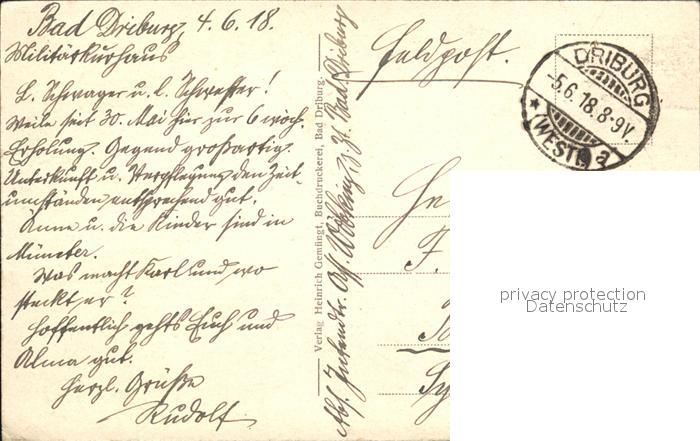 Bad Driburg, 4.6.18.
Militärkurhaus
L. Schwager u. l. Schwester!
Weile seit 30. Mai hier zur 6 wöch.
Erholung. Gegend großartig.
Unterkunft u. Verpflegung den Zeit-
umständen entsprechend gut.
Änne u. die Kinder sind in
Münster.
Was macht Karl und wo
steckt er?
Hoffentlich gehts Euch und
Alma gut.
Herzl. Grüße
Rudolf
Verlag Heinrich Gemfingt, Buchdruckerei, Bad Driburg.
Abs. Intendtr. z. Zt. Bad Driburg
Feldpost.
DRIBURG
-5.6.18.8-9V
* (WESTF.) a
privacy protection
Datenschutz